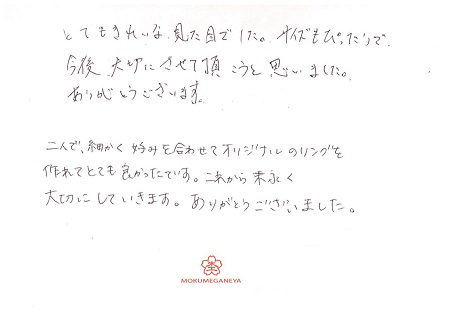 とてもきれいな見た目でした。サイズもぴったりで、
今後 大切にさせて頂こうと思いました。
ありがとうございます。
二人で、細かく好みを合わせてオリジナルのリングを
作れてとても良かったです。これから末永く
大切にしていきます。ありがとうございました。
MOKUMEGANEYA